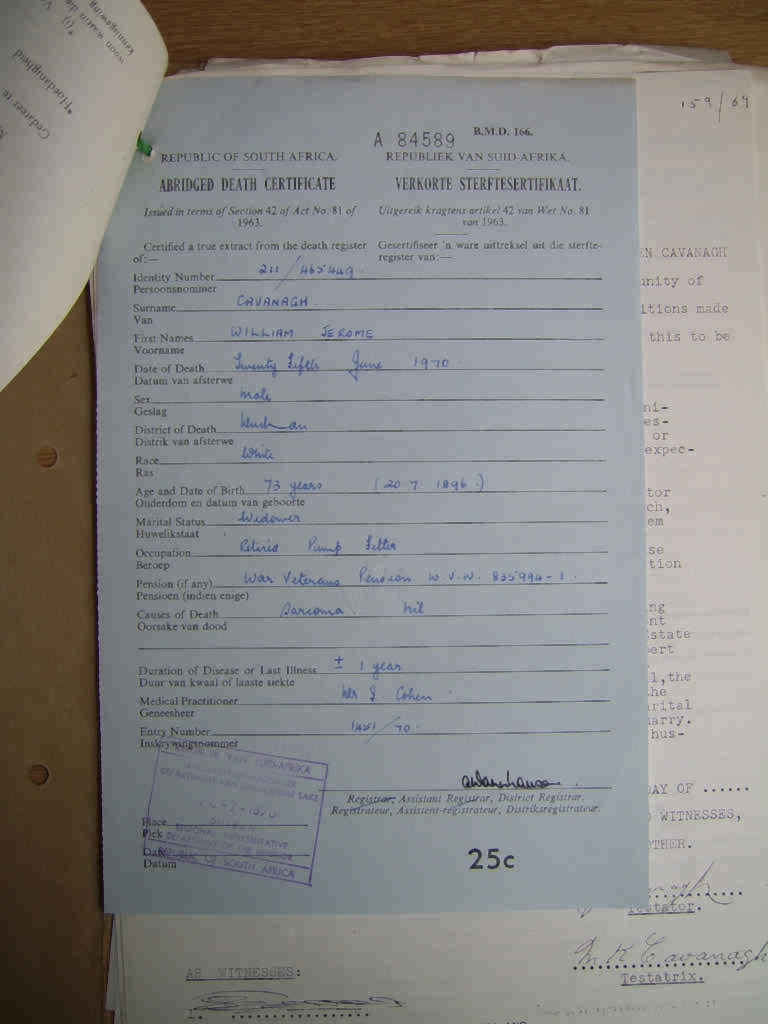 159/69
A 84589 B.M.D. 166.
REPUBLIC OF SOUTH AFRICA. REPUBLIEK VAN SUID-AFRIKA.
ABRIDGED DEATH CERTIFICATE VERKORTE STERFTESERTIFIKAAT.
Issued in terms of Section 42 of Act No. 81 of 1963. Uitgereik kragtens artikel 42 van Wet No. 81 van 1963.
Certified a true extract from the death register of:— Gesertifiseer 'n ware uittreksel uit die sterfte-register van:—
Identity Number 211/465449
Persoonsnommer
Surname CAVANAGH.
Van
First Names WILLIAM JEROME
Voorname
Date of Death Twenty Fifth June 1970.
Datum van afsterwe
Sex Male
Geslag
District of Death
Distrik van afsterwe
Race White
Ras
Age and Date of Birth 73 years (20.7.1896.)
Ouderdom en datum van geboorte
Marital Status Widower
Huwelikstaat
Occupation Retired Pump Fitter
Beroep
Pension (if any) War Veterans Pension W.V.N. 835994-1.
Pensioen (indien enige)
Causes of Death Sarcoma
Oorsake van dood
Duration of Disease or Last Illness ± 1 year
Duur van kwaal of laaste siekte
Medical Practitioner Cohen
Geneesheer
Entry Number 1451/70.
Inskrywingsnommer
Registrar, Assistant Registrar, District Registrar.
Registrateur, Assistent-registrateur, Distriksregistrateur.
Place
Plek
Date
Datum
REPUBLIC OF SOUTH AFRICA
25c
EN CAVANAGH
unity of
itions made
this to be
ni-
es-
or
expec-
tor
ch,
em
se
tion
ng
nt
Estate
bert
l, the
the
arital
arry.
hus-
DAY OF ......
WITNESSES,
OTHER.
Testator.
M K Cavanagh
Testatrix.
AS WITNESSES:
Gedateer te
*Hoedanigheid
*(i)
woon waarin die